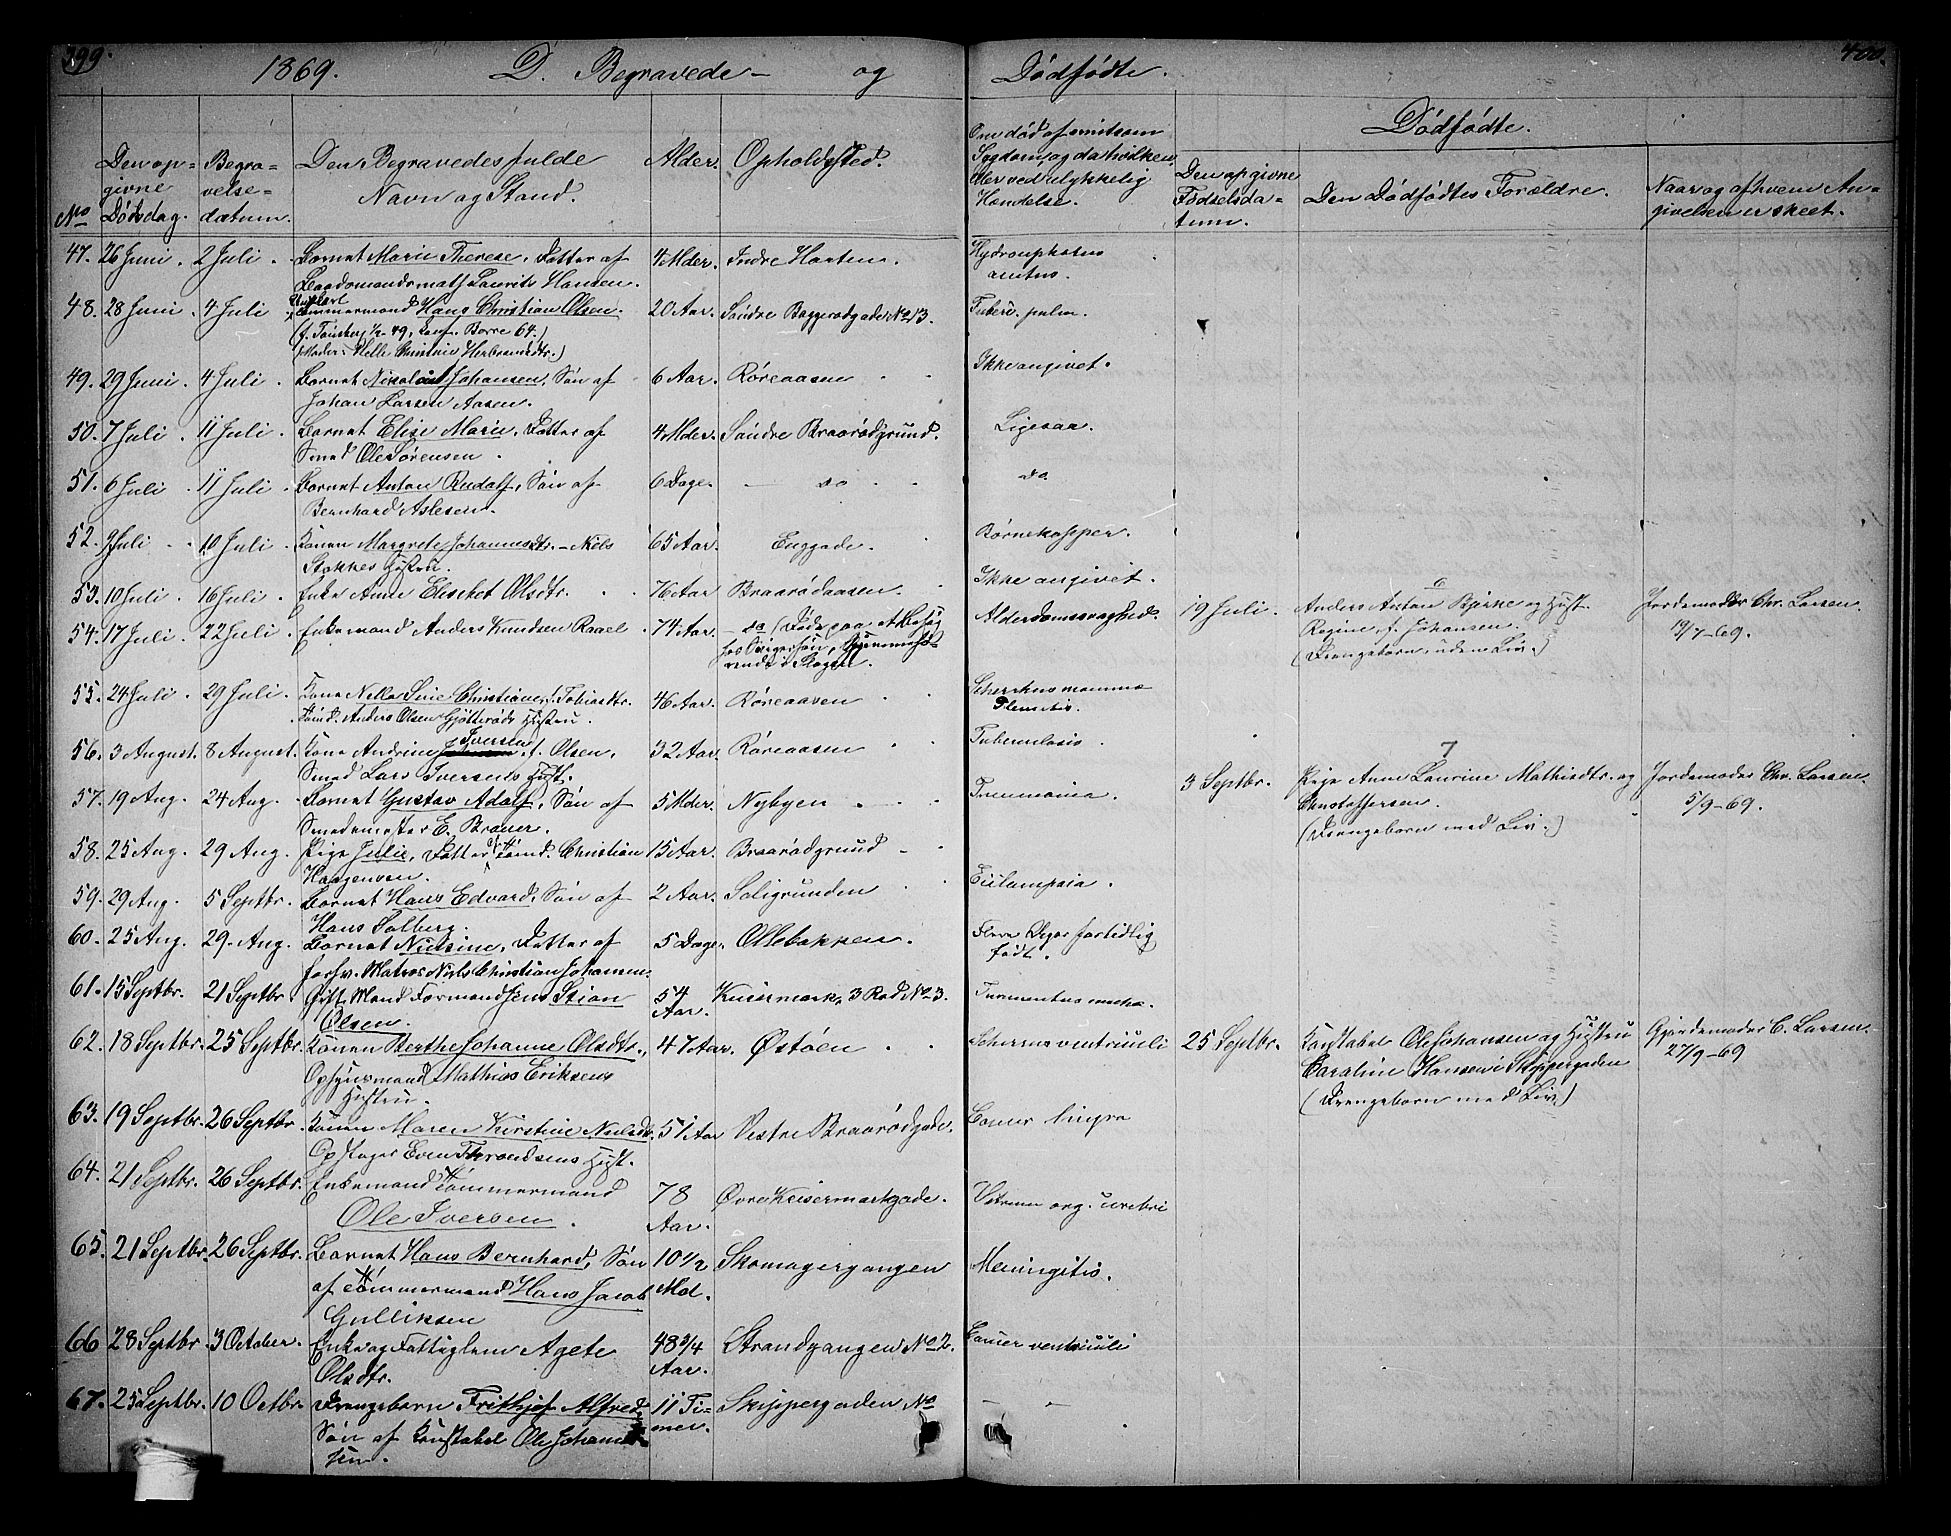 399.
1869. D. Begravede – og Dødfødte.
400.
No
Den op-
givne
Dødsdag.
Begra-
velse-
datum.
Den Begravedes fulde
Navn og Stand.
Alder.
Opholdssted.
Om død af smitsom
Sygdom, og da hvilken,
eller ved ulykkelig
Hændelse.
Dødfødte.
Den opgivne
Fødselsda-
tum.
Den Dødfødtes Forældre.
Naar og af hvem An-
givelsen er skeet.
47. 26 Juni. 2 Juli. Barnet Marie Therese, Datter af 4 Mder. Indre Hortens.
Baadsmandsmath Laurits Hansen.
48. 28 Juni. 4 Juli Ungkarl
Tømmermand Hans Christian Olsen. 20 Aar. Søndre Baggerødgade No 13. Tuberc. pulm.
Borre 64.)
(Moder: Helle Christine Herbrandsdtr.)
49. 29 Juni. 4 Juli. Barnet Nikolai Johansen, Søn af 6 Aar. Røreaasen Ikke angivet.
Johan Larsen Aasen.
50. 7 Juli. 11 Juli. Barnet Elise Marie, Datter af 4 Mder. Søndre Braarødgrund. Ligesaa.
Smed Ole Sørensen.
51. 6 Juli. 11 Juli. Barnet Anton Rudolf, Søn af 6 Dage. – do do.
Bernhard Aslesen.
52. 9 Juli 10 Juli. Konen Margrete Johannesdtr. – Niels 65 Aar. Enggade. Børnekopper.
Stokkes Hustru.
53. 10 Juli. 16 Juli. Enke Anne Elisebet Olsdtr. 76 Aar Braarødaasen. Ikke angivet.
54. 17 Juli. 22 Juli. Enkemand Anders Knudsen Raael 74 Aar. – do (Døde paa et Besøg Alderdomssvaghed.
hos Svigersøn,
i Skogen.
19 Juli. 6
Anders Anton Bjerke og Hust. Jordemoder Chr. Larsen.
Regine f. Johansen. 19/7-69.
(Drengebarn, uden Liv.)
55. 24 Juli 29 Juli. Kone Christiane, f. Tobiasdtr. 46 Aar. Røreaasen
Tømd. Anders Olsen Gjøtterøds Hustru.
56. 3 August. 8 August. Kone Andrine Iversen f. Olsen. 32 Aar. Røreaasen Tuberculosis.
Smed Lars Iversens Hust.
57. 19 Aug. 24 Aug. Barnet Gustav Adolf, Søn af 5 Mder. Nybyen
Smedemester E. Brauer.
3 Septbr. 7
Pige Anne Laurine Mathisdtr. og Jordemoder Chr. Larsen.
Christoffersen. 5/9-69.
(Drengebarn med Liv.)
58. 25 Aug. 29 Aug. Pige Julie, Datter af Tømd. Christian 15 Aar. Braarødgrund
Haagensen.
59. 29 Aug. 5 Septbr. Barnet Hans Edvard, Søn af 2 Aar. Soligrunden
Hans Solberg.
60. 25 Aug. 29. Aug. Barnet Nielsine, Datter af 5 Dage. Ollebakken. Flere Uger fortidlig
født.
forhv. Matros Niels Christian Johansen.
61. 15 Septbr. 21 Septbr Gift Mand Formand Jens Stian 54
Aar. Keisermark, 3 Rad No 3.
Olsen.
62. 18 Septbr. 25 Septbr. Konen Berthe Johanne Olsdtr., 47 Aar. Østøen
Opsynsmand Mathias Eriksens
Hustru.
25 Septbr. Konstabel Ole Johansen og Hustru Gjordemoder C. Larsen.
27/9-69
Caroline Hansen i Skippergaden
(Drengebarn med Liv)
63. 19 Septbr. 26 Septbr. Konen Maren Kirstine Nielsdtr. 51 Aar Vestre Braarødgade.
Opslager Even Throndsens Hust.
64. 21 Septbr. 26 Septbr. Enkemand Tømmermand 78
Aar. Øvre Keisermarkgade.
Ole Iversen.
65. 21 Septbr. 26 Septbr. Barnet Hans Bernhard, Søn 10 1/2
Md. Skomagergangen Meningitis.
af Tømmermand Hans Jacob
Gulliksen
66 28 Septbr 3 October. Enke og Fattiglem Agete 48 3/4
Aar. Strandgangen No 2. Cancer ventriculi
Olsdtr.
67. 25 Septbr. 10 Octbr. Drengebarn Frithjof Alfred 11 Ti-
mer. Skippergaden No
Søn af Konstabel Ole Johan-
sen.